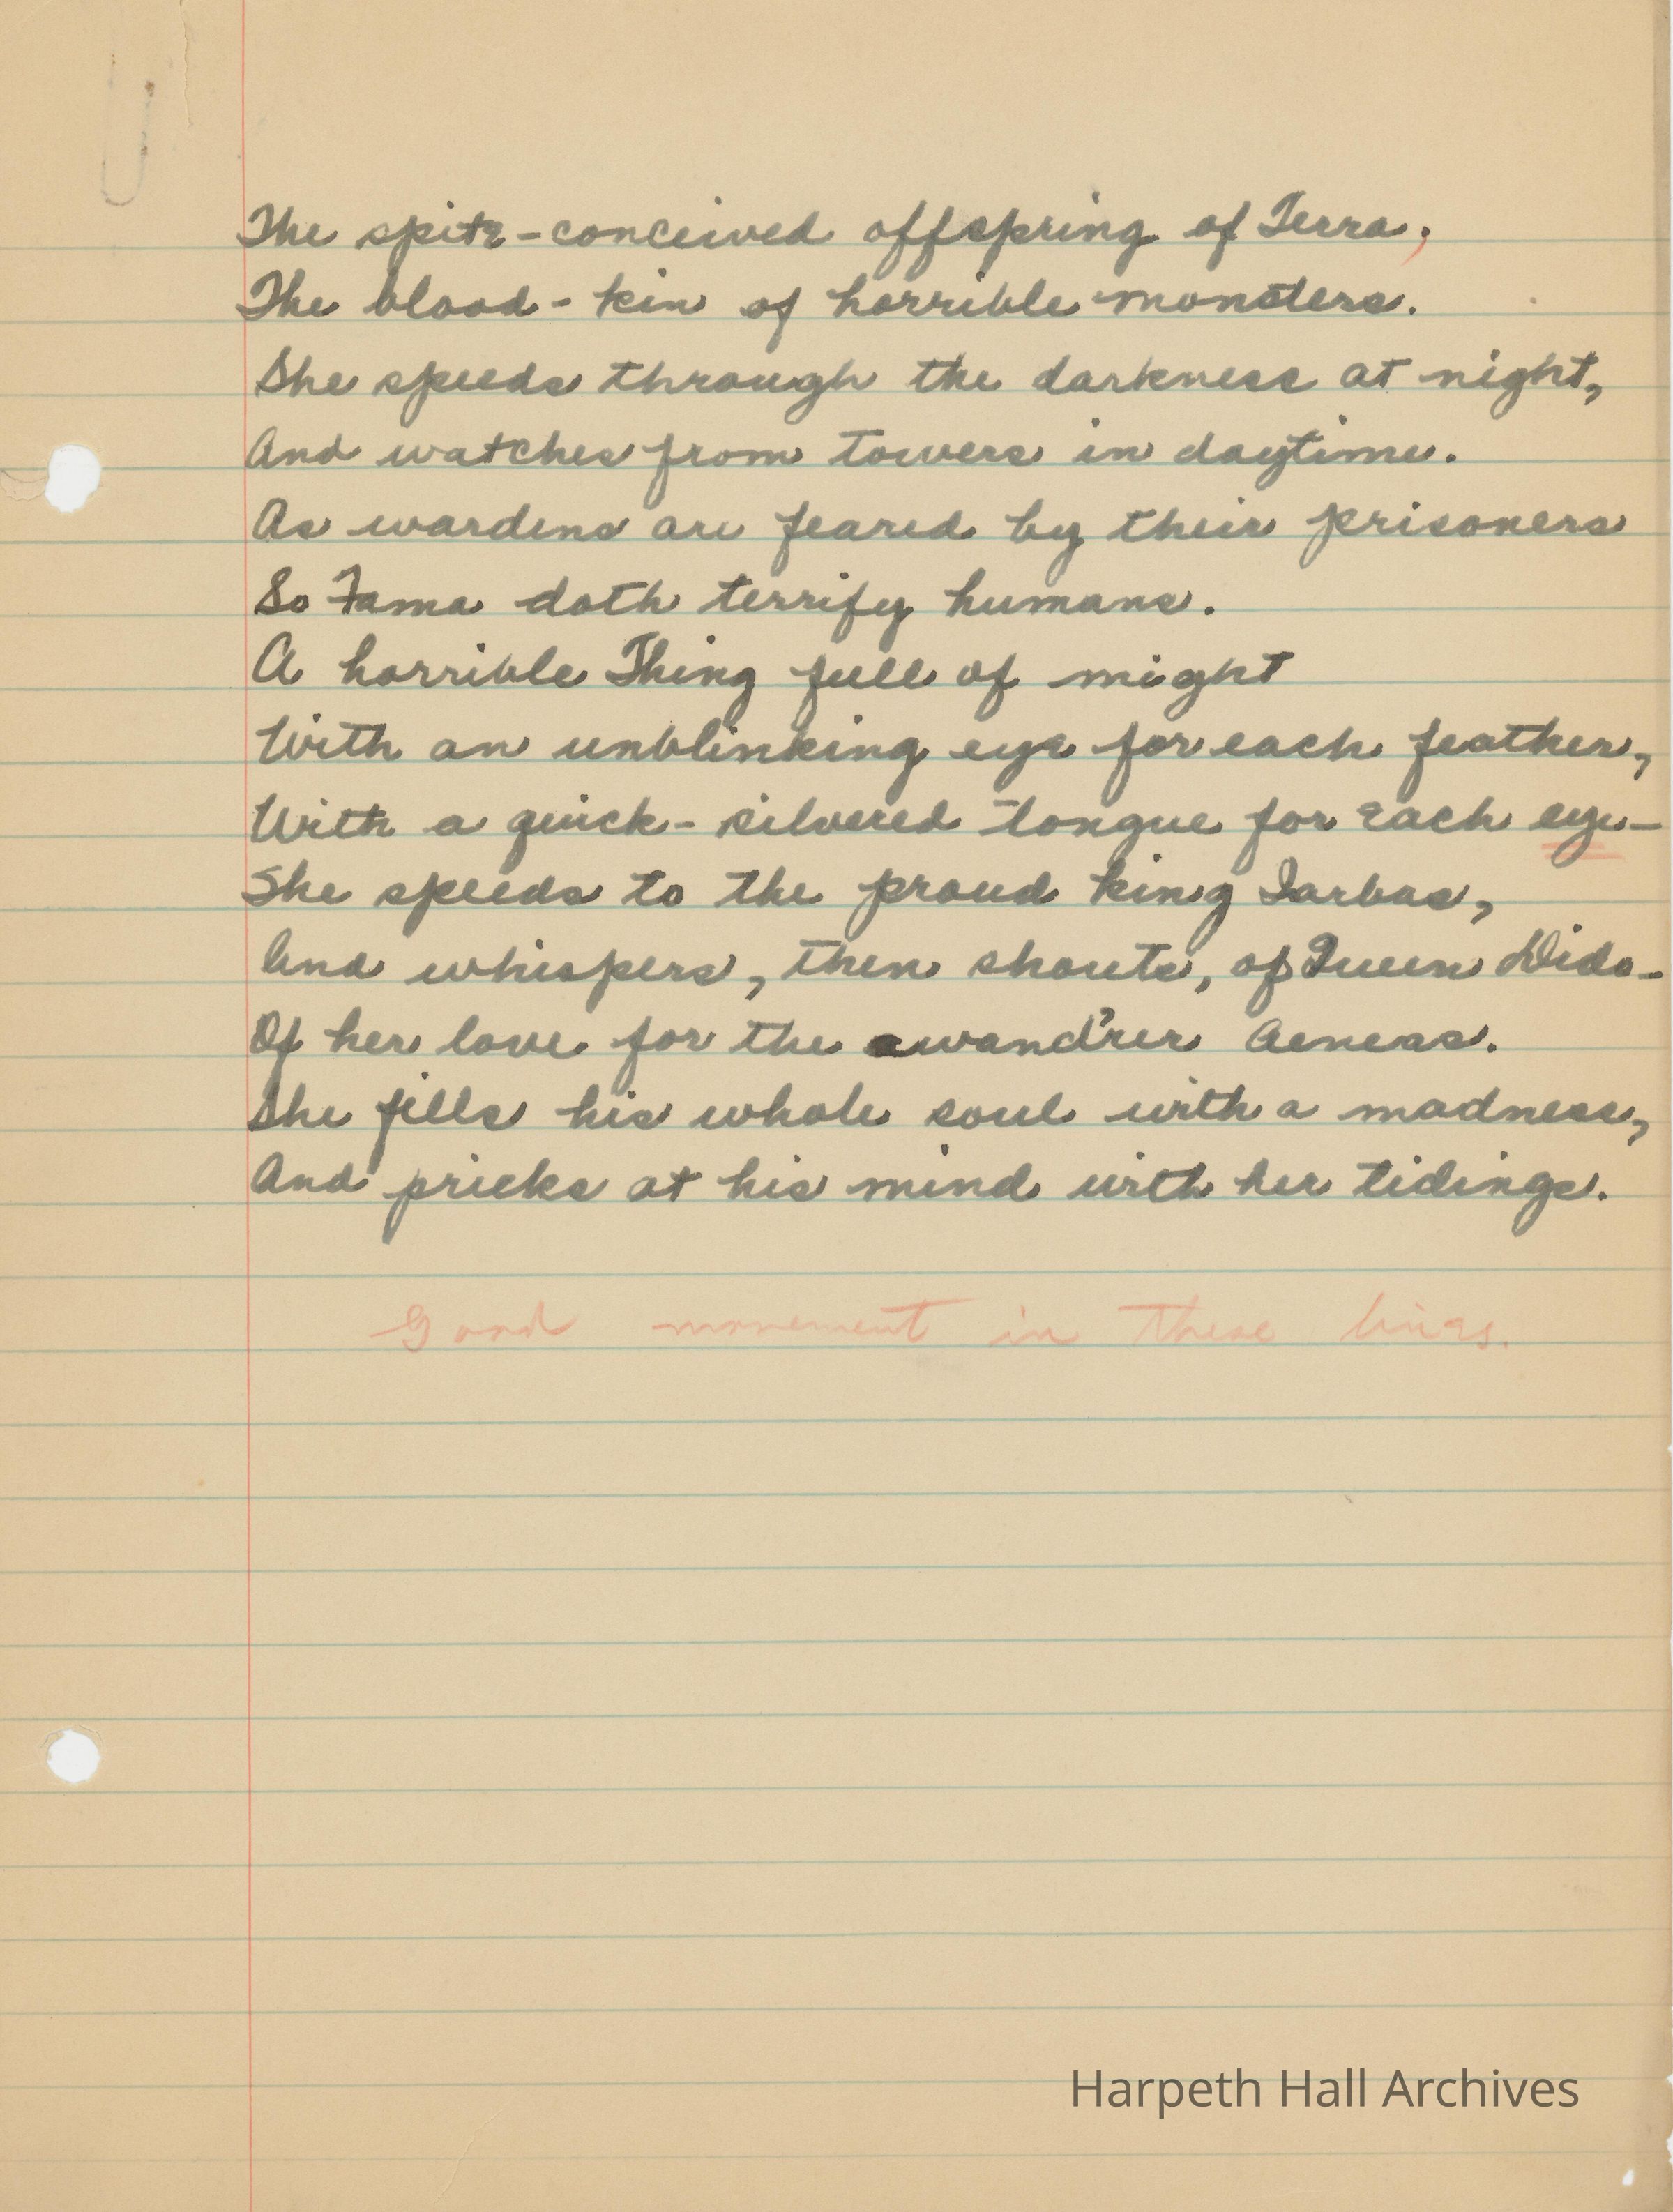 The spite-conceived offspring of Terra,
The blood-kin of horrible monsters.
She speeds through the darkness at night,
And watches from towers in daytime.
As wardens are feared by their prisoners
So Fama doth terrify humans.
A horrible Thing full of might
With an unblinking eye for each feather,
With a quick-silvered tongue for each eye—
She speeds to the proud king Iarbas,
And whispers, then shouts, of Queen Dido—
Of her love for the wand'rer Aeneas.
She fills his whole soul with a madness,
And pricks at his mind with her tidings.
Good movement in these lines.
Harpeth Hall Archives